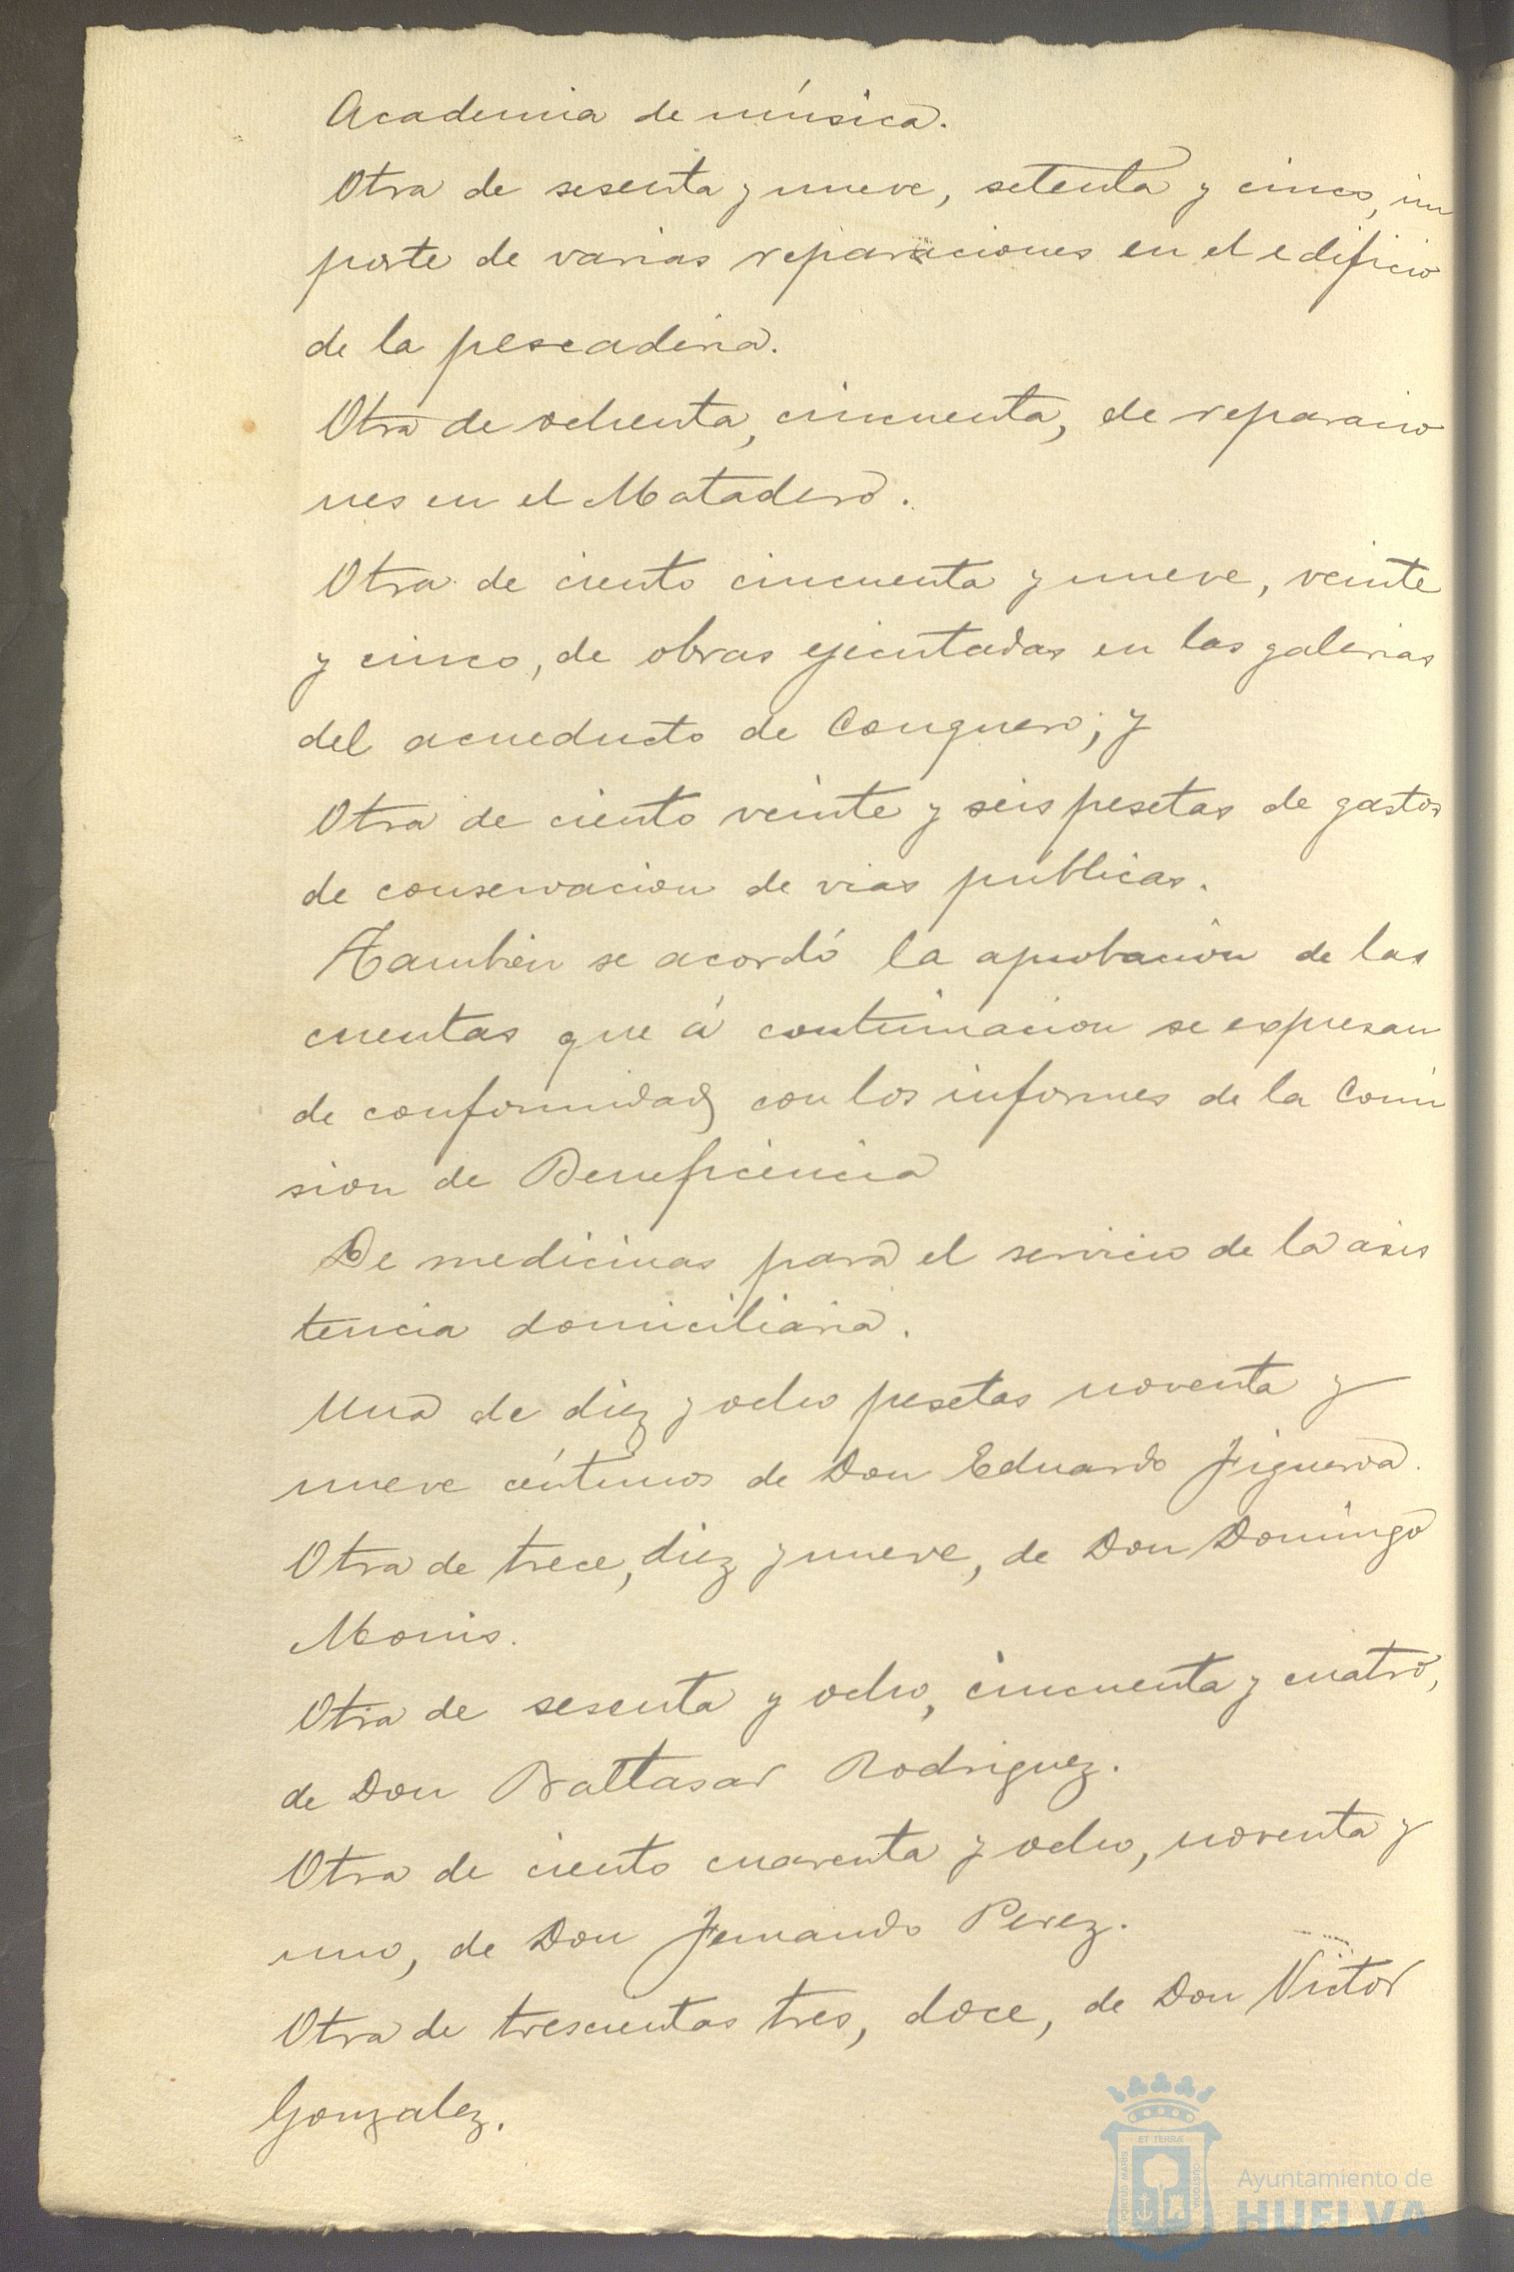 Academia de música.
Otra de sesenta y nueve, setenta y cinco, im
porte de varias reparaciones en el edificio
de la pescaderia.
Otra de ochenta, cincuenta, de reparacio
nes en el Matadero.
Otra de ciento cincuenta y nueve, veinte
y cinco, de obras ejecutadas en las galerias
del acueducto de Conquero; y
Otra de ciento veinte y seis pesetas de gastos
de conservacion de vias públicas.
Tambien se acordó la aprobación de las
cuentas que á continuacion se expresan
de conformidad con los informes de la Comi
sion de Beneficencia
De medicinas para el servicio de la asis
tencia domiciliaria.
Una de diez y ocho pesetas noventa y
nueve céntimos de Don Eduardo Figueroa.
Otra de trece, diez y nueve, de Don Domingo
Monis.
Otra de sesenta y ocho, cincuenta y cuatro,
de Don Baltasar Rodriguez.
Otra de ciento cuarenta y ocho, noventa y
uno, de Don Fernando Perez.
Otra de trescientas tres, doce, de Don Victor
Gonzalez.
ET TERRÆ
PORTUS MARIS
CUSTODIA
Ayuntamiento de
HUELVA